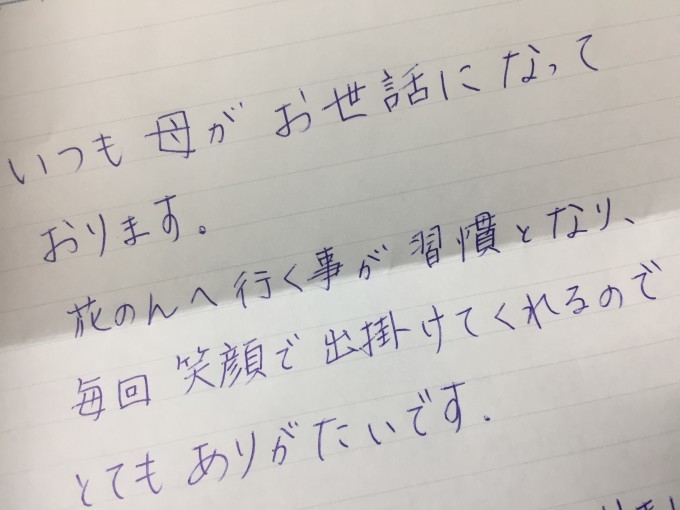 いつも母がお世話になって
おります。
花のんへ行く事が習慣となり、
毎回笑顔で出掛けてくれるので
とてもありがたいです.